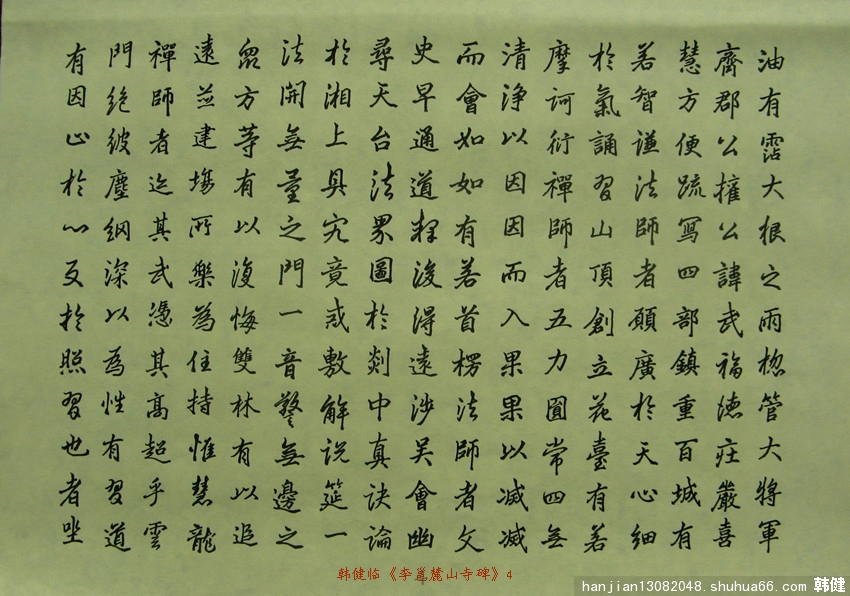 油有霑大根之雨揔管大將軍
齊郡公權公諱武福德莊嚴喜
慧方便疏寫四部鎮重百城有
若智謙法師者願廣於天心細
於氣誦習山頂創立花臺有若
摩訶衍禪師者五力圓常四無
清淨以因因而入果果以滅滅
而會如如有若首楞法師者文
史早通道釋後得遠涉吳會幽
尋天台法界圖於剡中真訣論
於湘上具究竟或敷解說筵一
法開無量之門一音警無邊之
衆方等有以復悔雙林有以追
遠並建塲所樂為住持惟慧龍
禪師者迄其武憑其高超乎雲
門絕彼塵網深以為性有習道
有因止於心反於照習也者坐
韩健临《李邕麓山寺碑》4
hanjian13082048.shuhua66.com 韩健